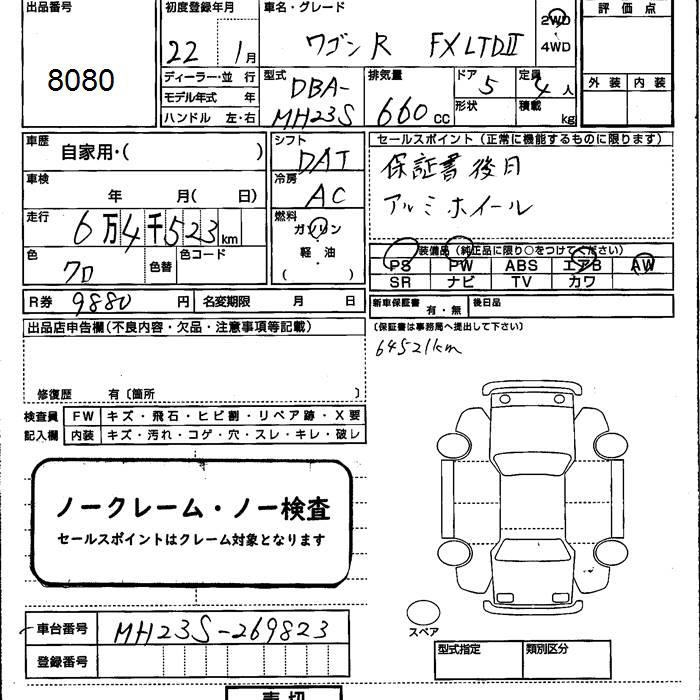 出品番号 初度登録年月 車名・グレード 評価点
8080 22 1月 ワゴンR FXLTDⅡ 2WD
4WD
ディーラー・並 行 型式 排気量 ドア 定員 外装 内装
モデル年式 年 DBA- 660cc 5 4人
ハンドル 左・右 MH23S 形状 積載 kg
車歴 シフト セールスポイント(正常に機能するものに限ります)
自家用・( ) DAT 保証書後日
車検 冷房 アルミホイール
年 月( 日) AC
走行 燃料
6万4千523km ガソリン
色 色替 色コード 軽油 装備品(純正品に限り○をつけてください)
クロ ( ) PS PW ABS エアB AW
SR ナビ TV カワ
R券 9880円 名変期限 月 日 新車保証書 有・無 後日品
出品店申告欄(不良内容・欠品・注意事項等記載) (保証書は事務局へ提出して下さい)
64521km
修復歴 有〔箇所 〕
検査員 FW キズ・飛石・ヒビ割・リペア跡・X要
記入欄 内装 キズ・汚れ・コゲ・穴・スレ・キレ・破レ
ノークレーム・ノー検査
セールスポイントはクレーム対象となります
スペア
車台番号 MH23S-269823
登録番号 型式指定 類別区分
売切